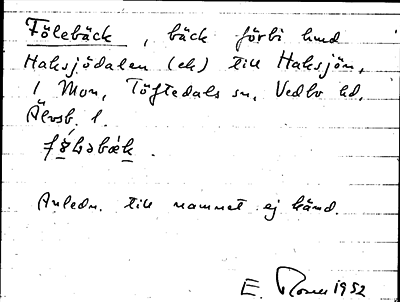 Fölebäck, bäck förbi lmd
Haksjödalen (ek) till Haksjön,
1 Mon, Töftedals sn, Vedbo hd,
Älvsb. l.
Anledn. till namnet ej känd.
E. 1952